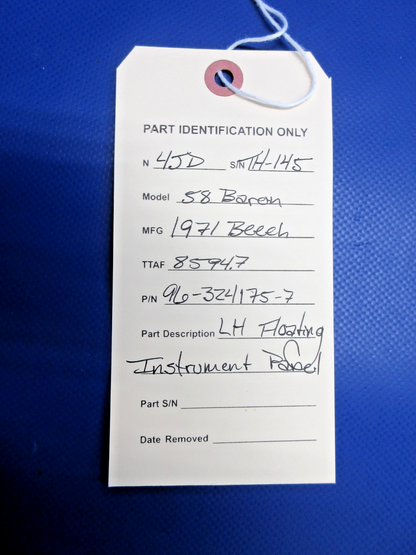 PART IDENTIFICATION ONLY
N 4JD S/N TH-145
Model 58 Baron
MFG 1971 Beech
TTAF 8594.7
P/N 96-324175-7
Part Description LH Floating
Instrument Panel
Part S/N
Date Removed